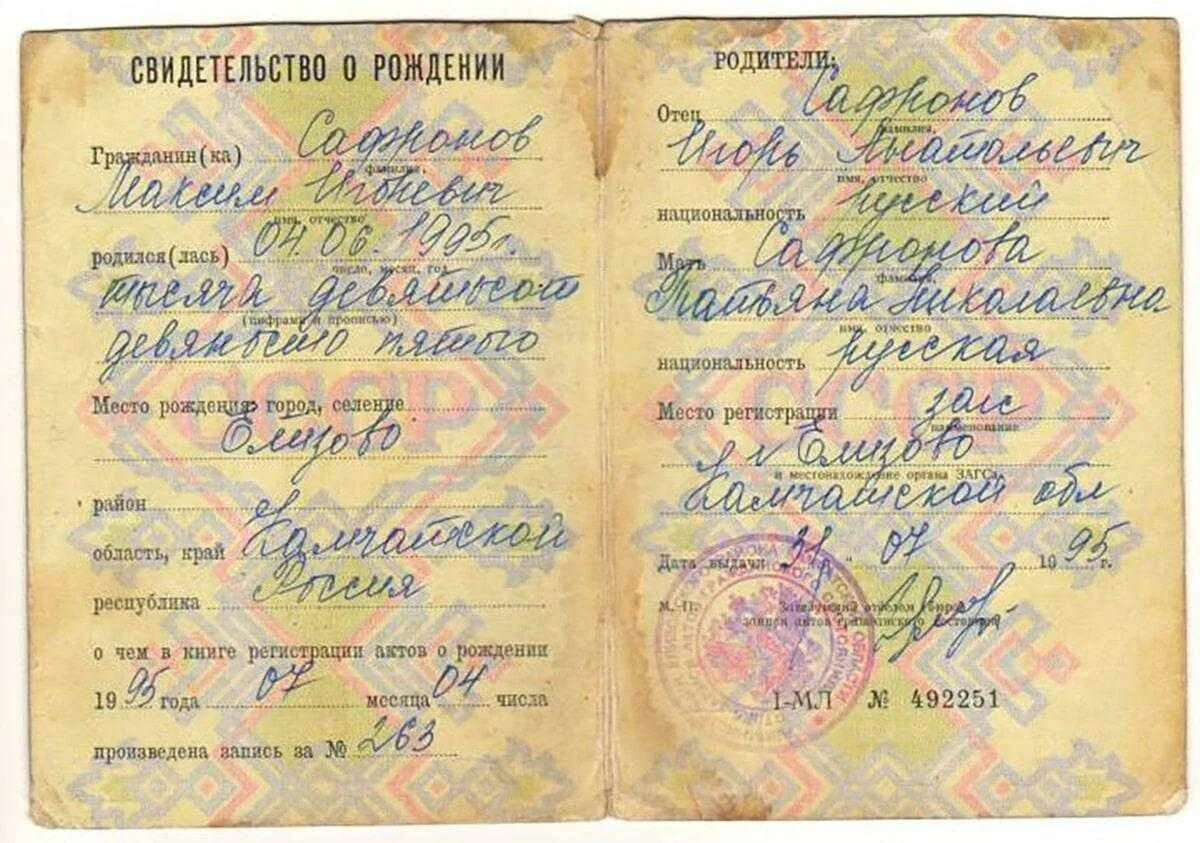 СВИДЕТЕЛЬСТВО О РОЖДЕНИИ
Гражданин(ка) Сафронов
фамилия,
Максим Игоревич
имя, отчество
родился(лась) 04.06.1995г.
число, месяц, год
тысяча девятьсот
(цифрами и прописью)
девяносто пятого
Место рождения: город, селение
Елизово
район
область, край Камчатской
республика Россия
о чем в книге регистрации актов о рождении
1995 года 07 месяца 04 числа
произведена запись за № 263
РОДИТЕЛИ:
Отец Сафронов
фамилия,
Игорь Анатольевич
имя, отчество
национальность русский
Мать Сафронова
фамилия,
Татьяна Николаевна
имя, отчество
национальность русская
Место регистрации загс
наименование
г Елизово
и местонахождение органа ЗАГСа
Камчатской обл
Дата выдачи 31 " 07 1995 г.
М. П. Заведующий отделом (бюро)
записи актов гражданского состояния
I-МЛ № 492251
СССР
СССР